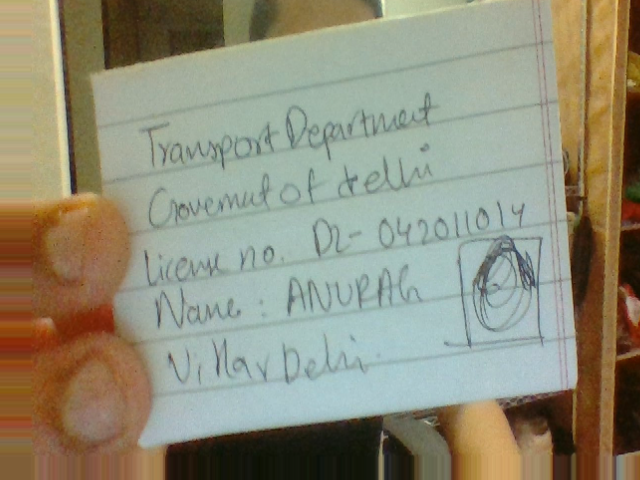 Transport Department
Government of Delhi
License no. DL-042011014
Name : ANURAG
Delhi